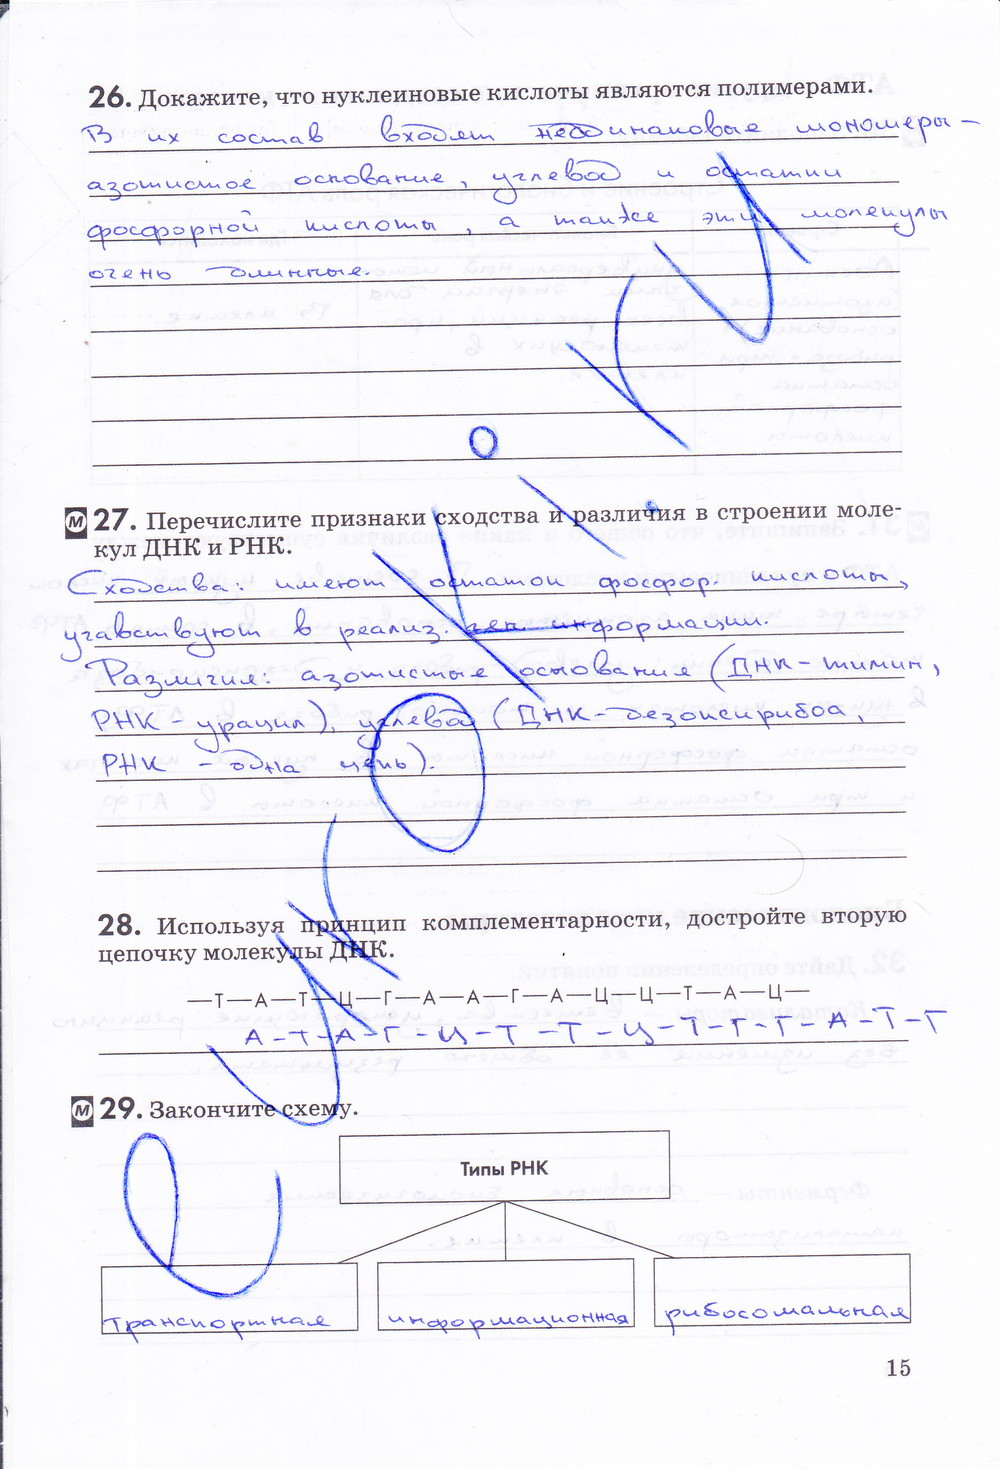 26. Докажите, что нуклеиновые кислоты являются полимерами.
В их состав входят неодинаковые мономеры –
азотистое основание, углевод и остатки
фосфорной кислоты, а также эти молекулы
очень длинные.
М 27. Перечислите признаки сходства и различия в строении моле-
кул ДНК и РНК.
Сходства: имеют остаток фосфор. кислоты,
учавствуют в реализ. ген. информации.
Различия: азотистые основания (ДНК-тимин,
РНК - урацил), углевод (ДНК-дезоксирибоа,
РНК - одна цепь).
28. Используя принцип комплементарности, достройте вторую
цепочку молекулы ДНК.
—Т—А—Т—Ц—Г—А—А—Г—А—Ц—Ц—Т—А—Ц—
А-Т-А-Г-Ц-Т-Т-Ц-Т-Г-Г-А-Т-Г
М 29. Закончите схему.
Типы РНК
транспортная информационная рибосомальная
15